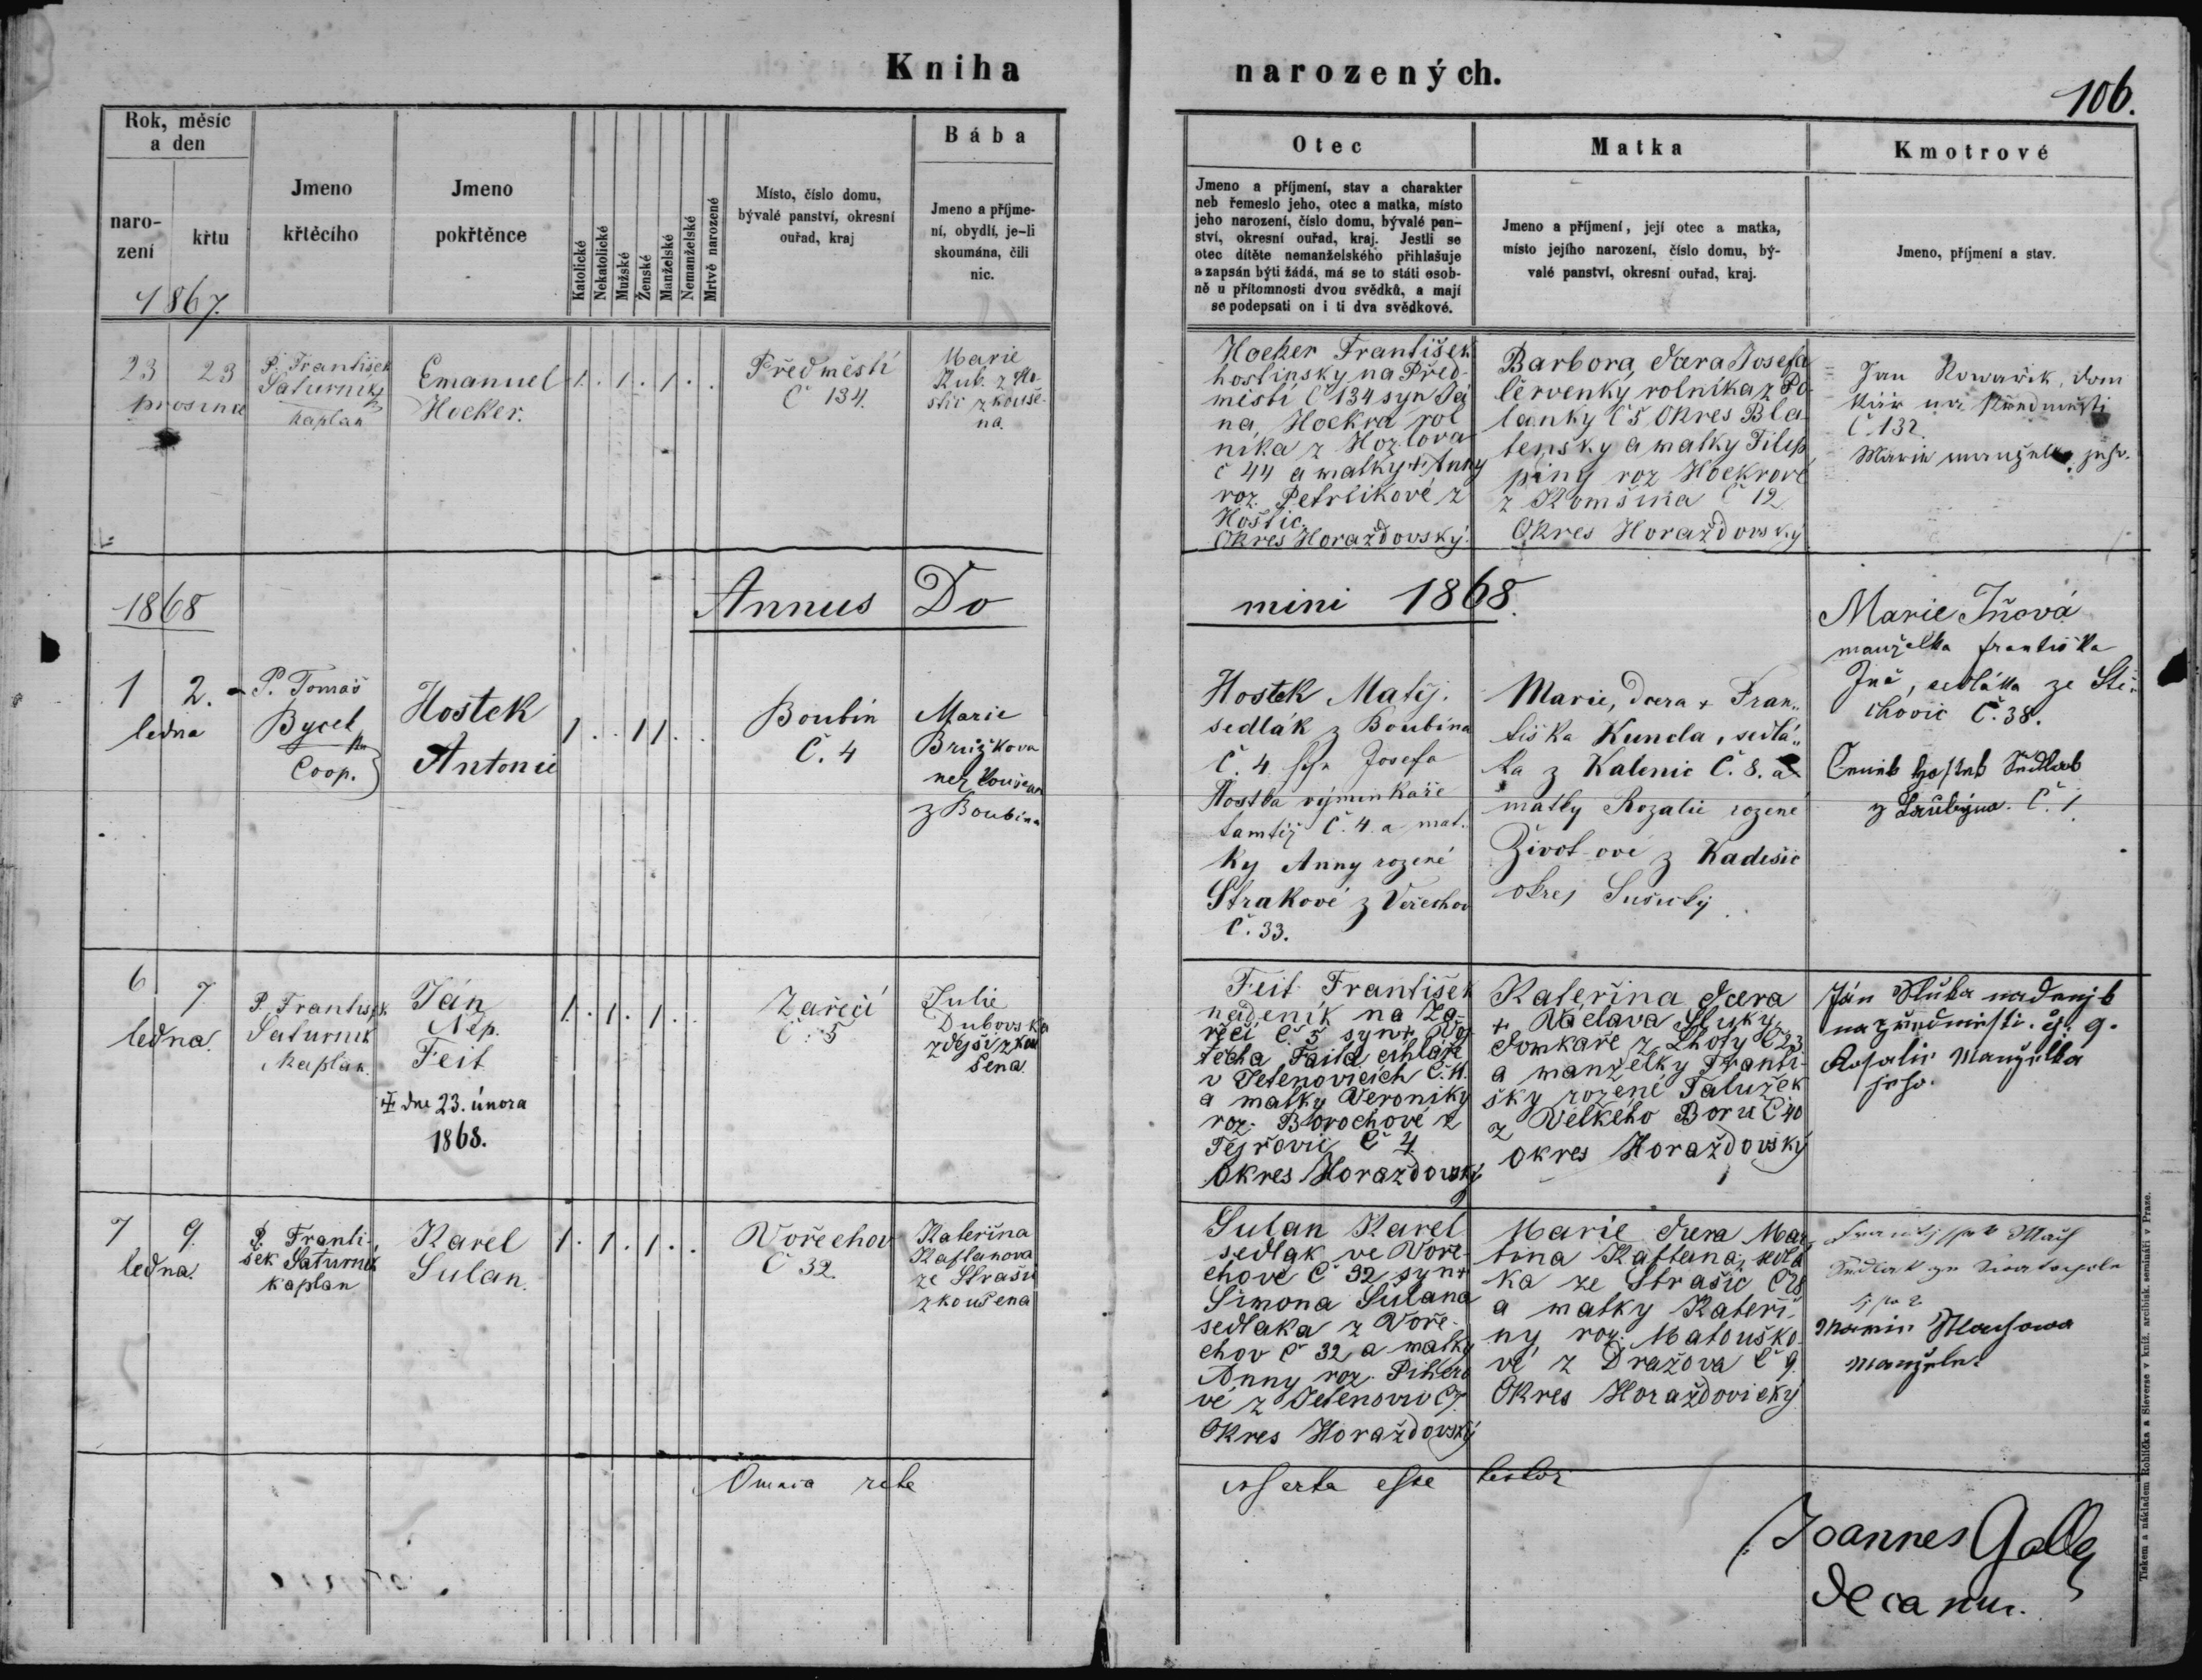 Kniha narozených.
106.
Rok, měsíc a den
narození
křtu
1867.
Jmeno křtěcího
Jmeno pokřtěnce
Katolické
Nekatolické
Mužské
Ženské
Manželské
Nemanželské
Mrtvě narozené
Místo, číslo domu, bývalé panství, okresní ouřad, kraj
Bába
Jmeno a příjmení, obydlí, je-li skoumána, čili nic.
Otec
Jmeno a příjmení, stav a charakter
neb řemeslo jeho, otec a matka, místo
jeho narození, číslo domu, bývalé pan-
ství, okresní ouřad, kraj. Jestli se
otec dítěte nemanželského přihlašuje
a zapsán býti žádá, má se to státi osob-
ně u přítomnosti dvou svědků, a mají
se podepsati on i ti dva svědkové.
Matka
Jmeno a příjmení, její otec a matka,
místo jejího narození, číslo domu, bý-
valé panství, okresní ouřad, kraj.
Kmotrové
Jmeno, příjmení a stav.
23 23
prosince
P. František
Saturník
kaplan
Emanuel
Hocker.
1 . 1 . 1 . .
Předměstí
Č 134.
Marie
Kub. z Ho-
stic zkouše-
na.
Hocker František
hostinsky na Před-
městí Č 134 syn
na, Hockra rol
níka z Hozlova
č 44 a matky Anny
roz. Petrlikové z
Hoštic.
Okres Horažďovský.
Barbora dcera Josefa
Červenky rolníka z Po
lanky Č 5 Okres Bla-
tensky a matky Filip
piny roz Hockrové
z Komšína Č 12
Okres Horažďovský
Jan Kowařík, dom
kář na Předměstí
Č 132.
Marie manželka jeho.
1868
Annus Do
mini 1868.
1 2.
ledna
P. Tomáš
Bycek
Coop.
Hostek
Antonie
1 . . 1 1 . .
Boubín
Č. 4
Marie
Bružkova
z Boubína
Hostek Matěj.
sedlák z Boubína
Č. 4 syn Josefa
Hostka výminkáře
tamtéž Č. 4. a mat-
ky Anny rozené
Strakové z Veřechov
Č. 33.
Marie, dcera + Fran-
tiška Kuncla, sedlá-
ka z Kalenic Č. 8. a
matky Rozalie rozené
Životové z Kadešic
okres Sušický
Marie Jňová
manželka františka
Jně, sedláka ze Stě-
chovic Č. 38.
Hostek Sedlak
z Č. 1.
6 7
ledna.
P. František
Saturník
kaplan.
Ján
Nep.
Feit
† dne 23. února
1868.
1 . 1 . 1 . .
Zářečí
Č. 5
Julie
Dubovska
zdejší zkou
šena
Feit František
nadeník na Zá-
řečí Č 5 syn+ Voj
těcha Faita cihláře
v Tetenovicích Č. 11.
a matky Veroniky
roz. Blorochové z
Tejřovic Č 4
Okres Horažďovský
Kateřina dcera
+ Václava Sluky
domkáře z Lhoty Č 23
a manželky Franti-
šky rozené Talužek
z Velkého Boru Č 40
Okres Horažďovský
Ján Slúka nadenjk
na předměstí. čj. 9.
Rosalie Manželka
jeho.
7 9.
ledna.
P. Franti-
šek Saturník
kaplan
Karel
Sulan.
1 . 1 . 1 . .
Vořechov
Č 32.
Kateřina
Kaflanova
ze Strašic
zkoušena
Sulan Karel
sedlak ve Voře-
chově Č 32 syn+
Šimona Šulana
sedlaka z Voře-
chov Č 32 a matky
Anny roz. Pihero
vé z Tetenovic Č 7.
Okres Horažďovský
Marie dcera Mar
tina Kaftana, sedlá
ka ze Strašic Č 28
a matky Kateři-
ny, roz. Matouško-
vé z Dražova Č 9.
Okres Horaždovický
Mach
Sedlak ze
Marie Machowa
manžele.
Omnia rite
inserta esse testor
Joannes Galle
Decanus.
Tiskem a nákladem Rohlíčka a Sieverse v kníž. arcibisk. semináři v Praze.